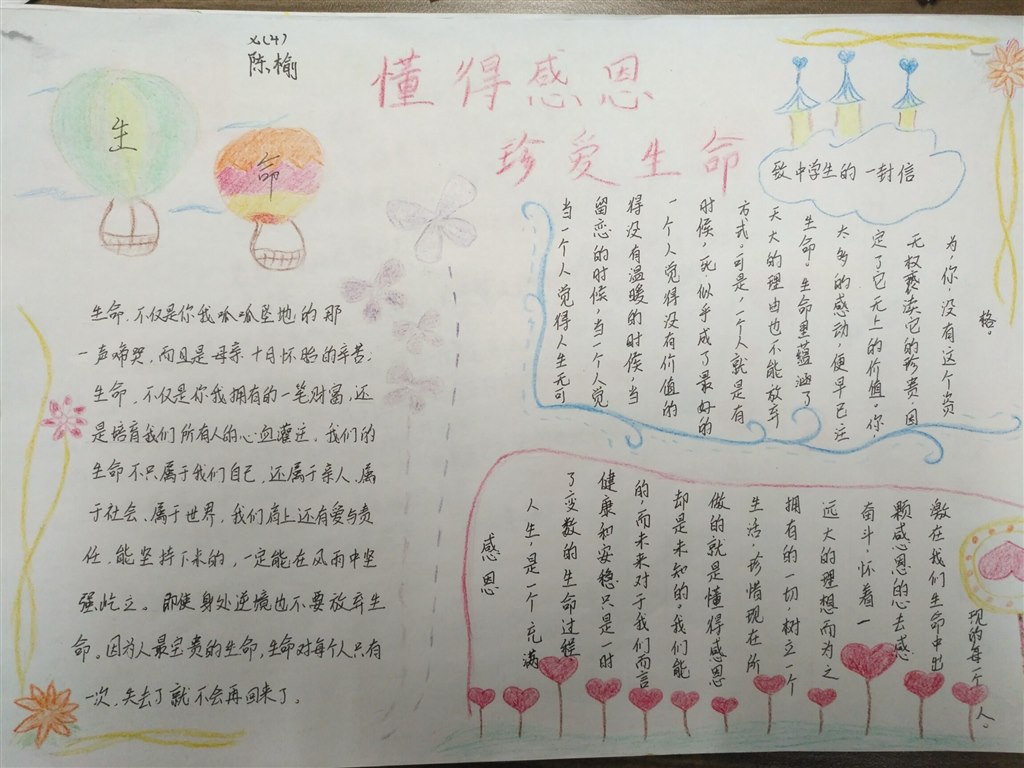 陈榆
懂得感恩
珍爱生命
生
命
生命，不仅是你我呱呱坠地的那
一声啼哭，而且是母亲十月怀胎的辛苦；
生命，不仅是你我拥有的一笔财富，还
是培育我们所有人的心血灌注，我们的
生命不只属于我们自己，还属于亲人、属
于社会、属于世界，我们肩上还有爱与责
任，能坚持下来的，一定能在风雨中坚
强屹立。即使身处逆境也不要放弃生
命。因为人最宝贵的生命，生命对每个人只有
一次，失去了就不会再回来了。
致中学生的一封信
当一个人觉得人生无可
留恋的时候，当一个人觉
得没有温暖的时候，当
一个人觉得没有价值的
时候，死似乎成了最好的
方式。可是，一个人就是有
天大的理由也不能放弃
生命。生命里蕴涵了
太多的感动，便早已注
定了它无上的价值。你，
无权亵渎它的珍贵，因
为，你，没有这个资
格。
感恩
人生，是一个充满
了变数的生命过程
健康和安稳只是一时
的，而未来对于我们而言
却是未知的。我们能
做的就是懂得感恩
生活，珍惜现在所
拥有的一切，树立一个
远大的理想而为之
奋斗，怀着一
颗感恩的心去感
激在我们生命中出
现的每一个人。